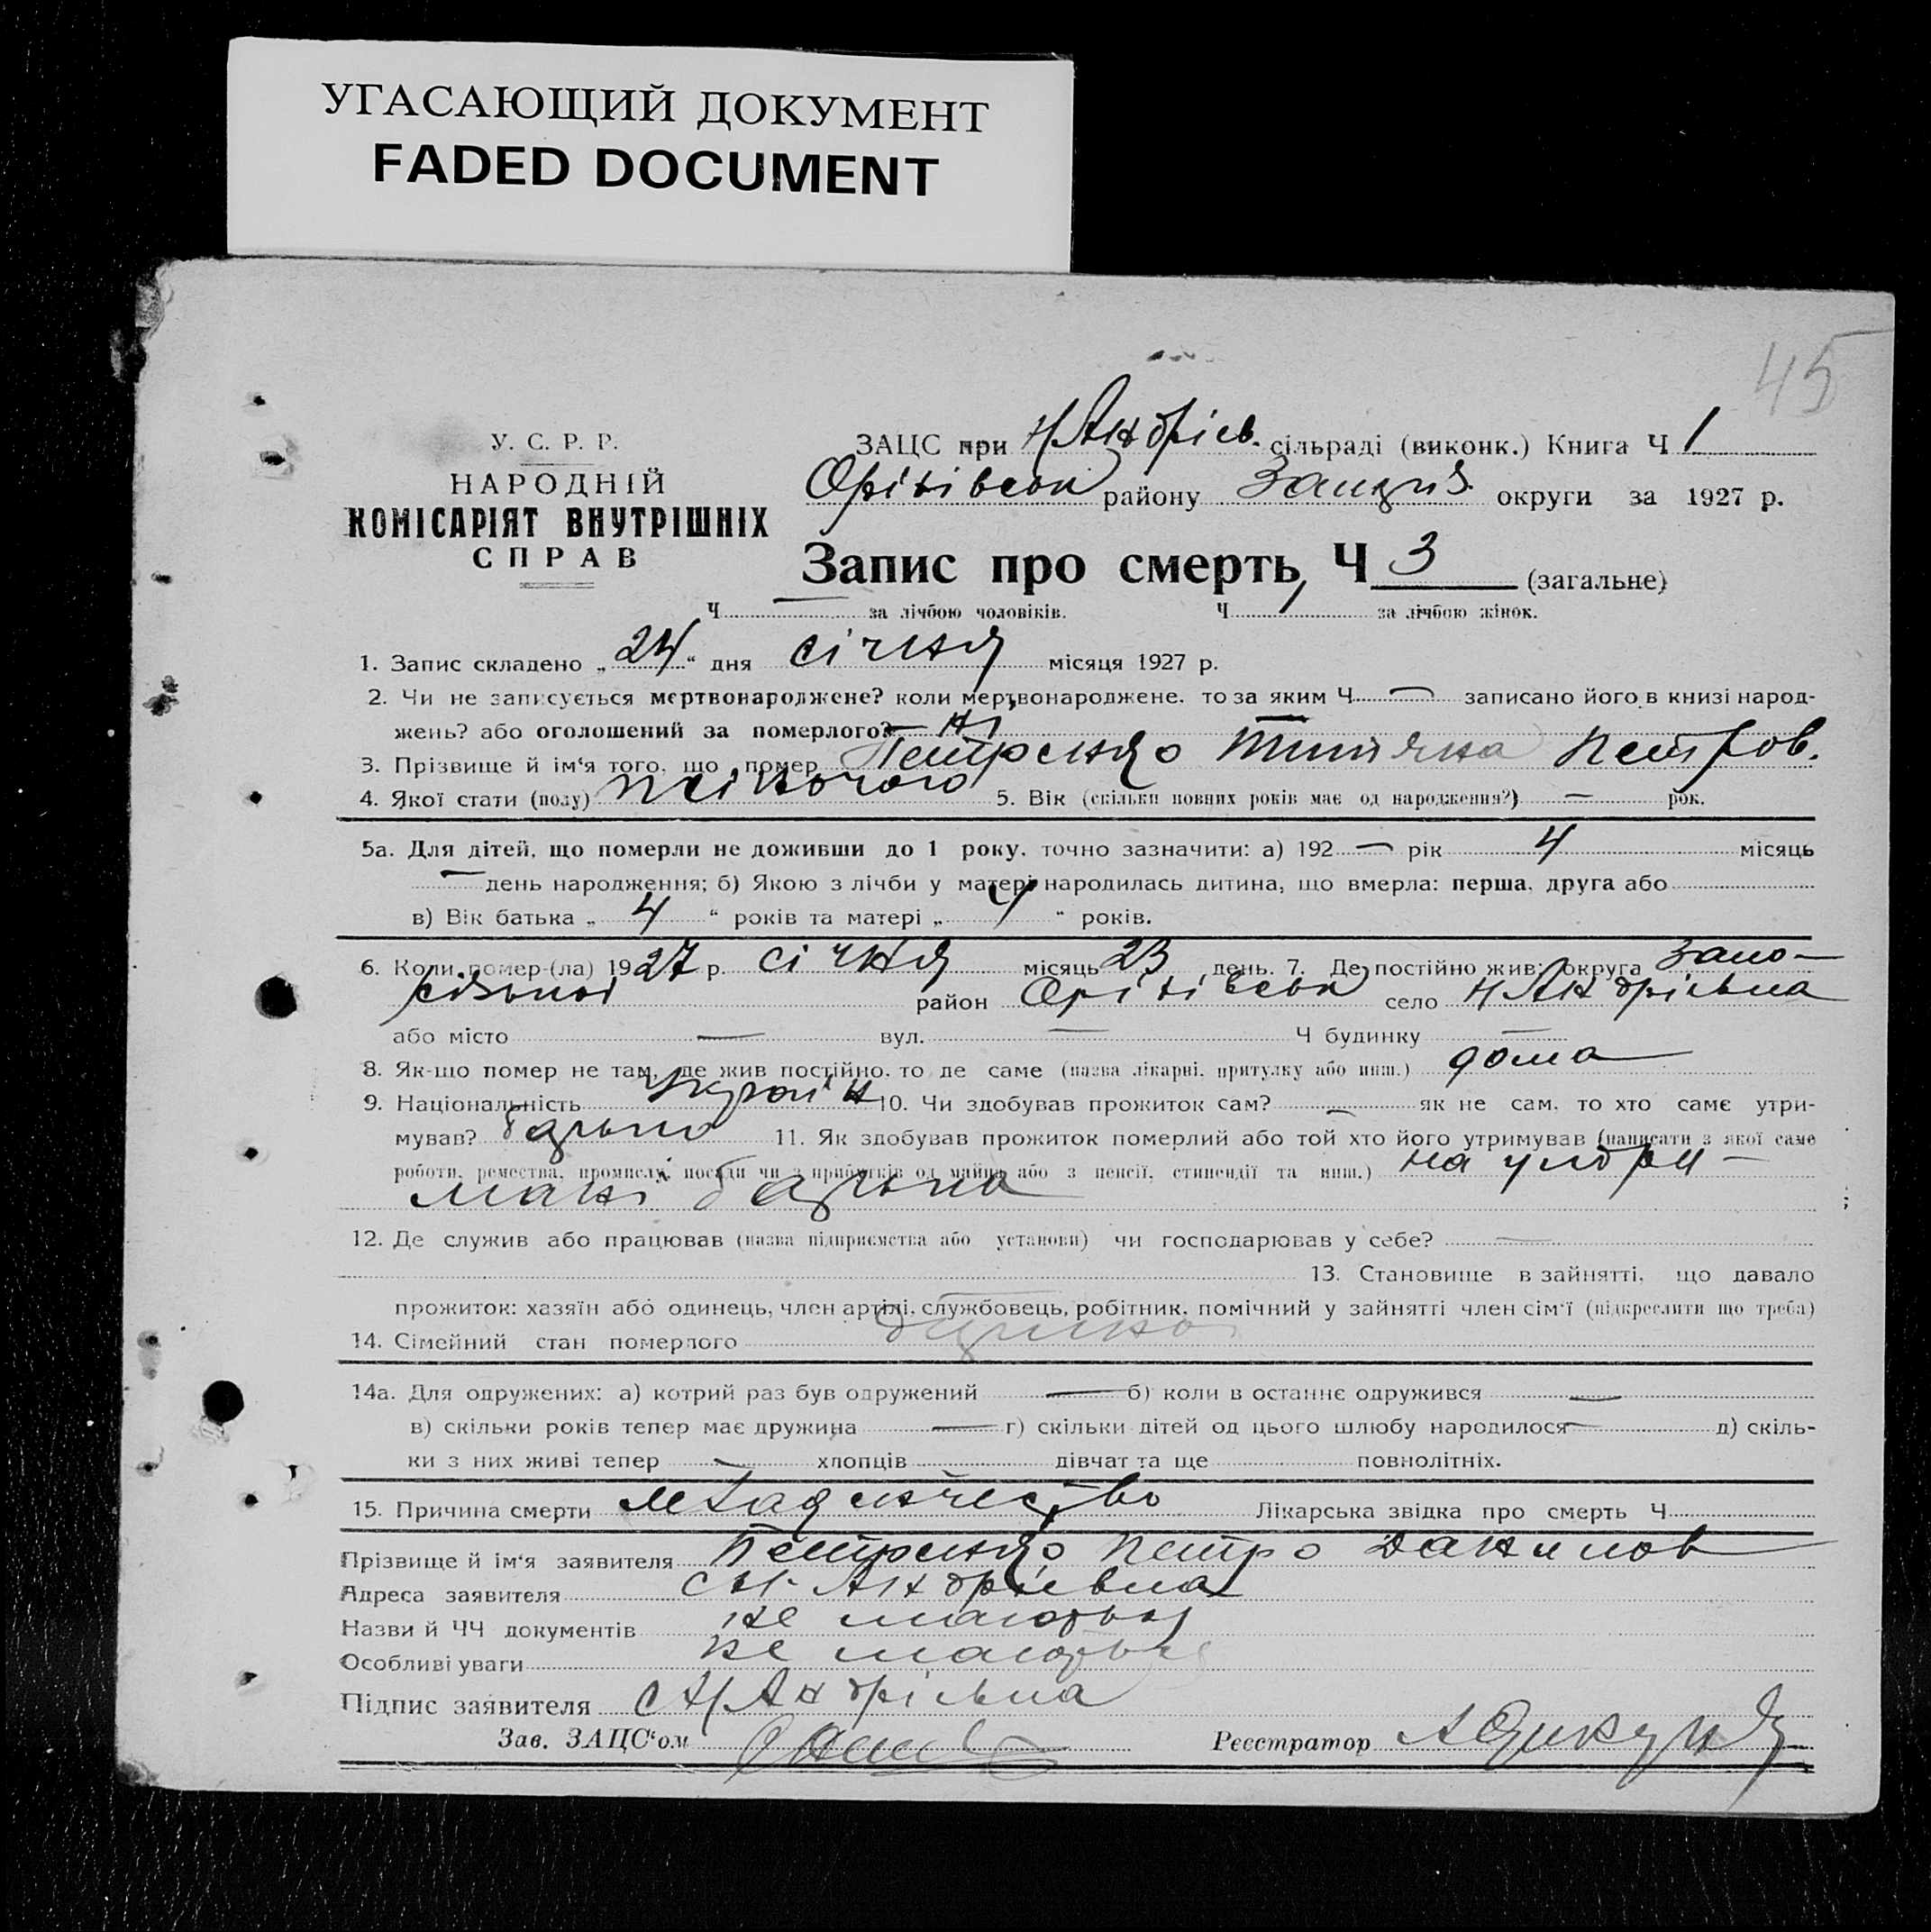 УГАСАЮЩИЙ ДОКУМЕНТ
FADED DOCUMENT
45
У. С. Р. Р.
НАРОДНІЙ
КОМІСАРІЯТ ВНУТРІШНІХ
СПРАВ
ЗАЦС при Н Андрієв. сільраді (виконк.) Книга Ч 1
Оріхівськ району округи за 1927 р.
Запис про смерть, Ч 3 (загальне)
Ч — за лічбою чоловіків. Ч 1 за лічбою жінок.
1. Запис складено „ 24 “ дня січня місяця 1927 р.
2. Чи не записується мертвонароджене? коли мертвонароджене. то за яким Ч — записано його в книзі народ-
жень? або оголошений за померлого? — Ні
3. Прізвище й ім‘я того, що помер Петренко Титяна Петров.
4. Якої стати (полу) жіночого 5. Вік (скільки повних років має од народження?) — рок.
5а. Для дітей, що померли не доживши до 1 року, точно зазначити: а) 192 — рік 4 місяць
— день народження; б) Якою з лічби у матері народилась дитина, що вмерла: перша, друга або
в) Вік батька „ 4 “ років та матері „ “ років.
6. Коли помер-(ла) 1927 р. січня місяць 23 день. 7. Де постійно жив: округа Запо-
район Оріхівськ село Н Андрієвка
або місто — вул. — Ч будинку —
8. Як-що помер не там, де жив постійно, то де саме (назва лікарні, притулку або инш.) дома
9. Національність Україн 10. Чи здобував прожиток сам? — як не сам, то хто саме утри-
мував? батько 11. Як здобував прожиток померлий або той хто його утримував (написати з якої саме
роботи, ремества, промислу, посади чи з прибутків од майна або з пенсії, стипендії та инш.) на утри—
мані батька
12. Де служив або працював (назва підприємства або установи) чи господарював у себе? —
13. Становище в зайнятті, що давало
прожиток: хазяїн або одинець, член артілі, службовець, робітник, помічний у зайнятті член сім‘ї (підкреслити що треба)
14. Сімейний стан померлого
14а. Для одружених: а) котрий раз був одружений — б) коли в останнє одружився —
в) скільки років тепер має дружина — г) скільки дітей од цього шлюбу народилося — д) скіль-
ки з них живі тепер — хлопців дівчат та ще повнолітніх.
15. Причина смерти младенчество Лікарська звідка про смерть Ч
Прізвище й ім‘я заявителя Петренко Петро Данилов
Адреса заявителя с Н. Андрієвка
Назви й ЧЧ документів не мається
Особливі уваги не мається
Підпис заявителя с Н Андрієвка
Зав. ЗАЦС‘ом
Реєстратор